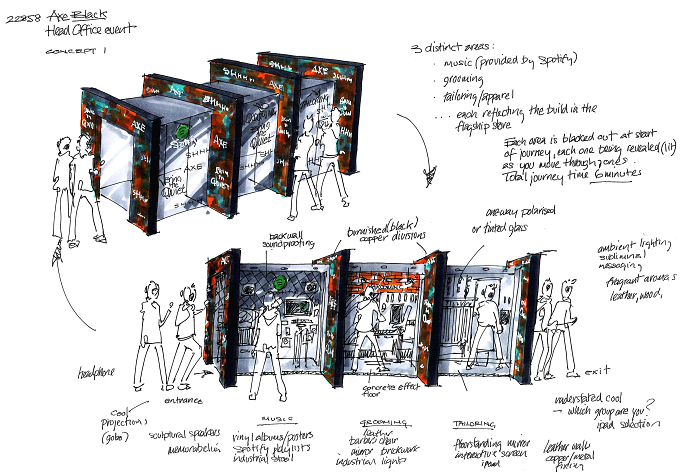 22858 Axe Black
Head Office event
CONCEPT 1
3 distinct areas:
. music (provided by Spotify)
. grooming
. tailoring/apparel
... each reflecting the build in the
flagship store
Each area is blacked out at start
of journey, each one being revealed (lit)
as you move through zones.
Total journey time 6 minutes
AXE
SHHH
AXE
SHHH
AXE
SHHH
AXE
Bring the Quiet
SHHH
AXE
Bring
the
Quiet
backwall
soundproofing
burnished (black)
copper divisions
oneway polarised
or tinted glass
ambient lighting
subliminal
messaging
fragrant aromas
leather, wood,
headphone
entrance
concrete effect
floor
exit
cool
projections
(gobo)
sculptural speakers
memorabelia
MUSIC
vinyl albums/posters
Spotify playlists
industrial stool
GROOMING
leather
barbers chair
mirror brickwork
industrian lights
TAILORING
floorstanding mirror
interactive screen
ipad
understated cool
— which group are you?
ipad selection
leather walk
copper/metal
fixing